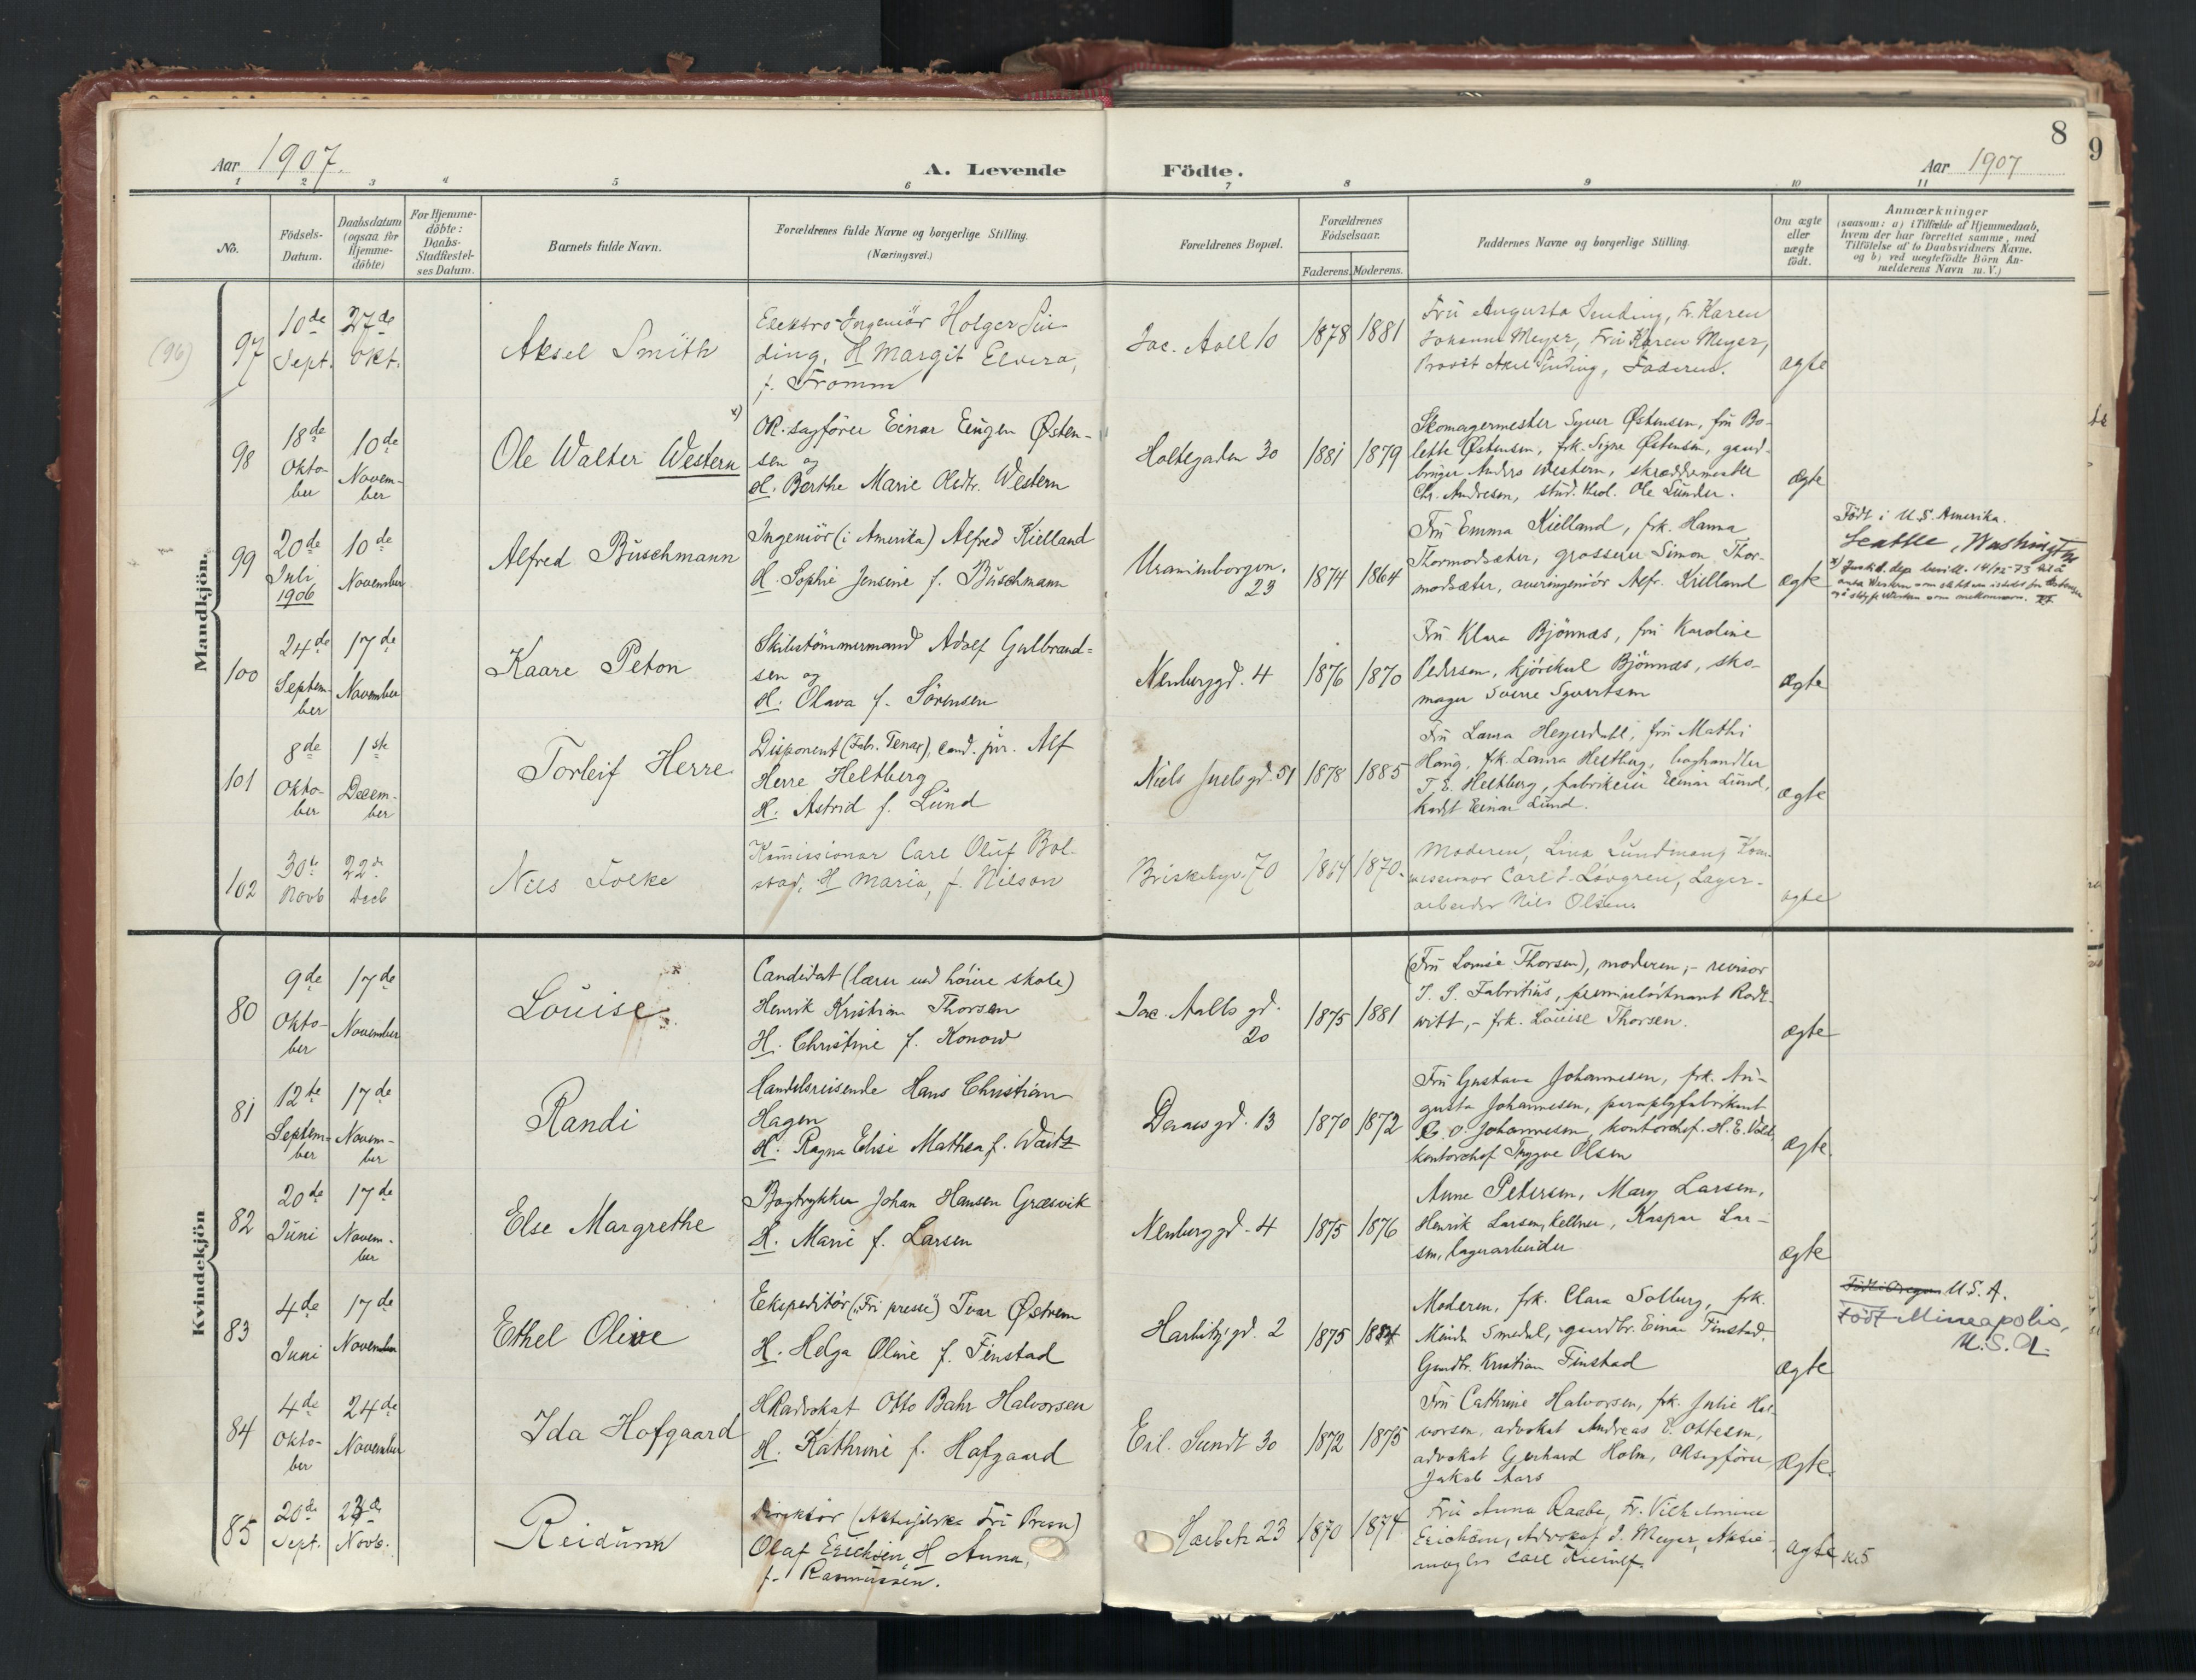 8
9
Aar 1907.
A. Levende
Födte.
Aar 1907
1 2 3 4 5 6 7 8 9 10 11
No.
Födsels-
Datum.
Daabsdatum
(ogsaa for
Hjemme-
döbte)
For Hjemme-
döbte:
Daabs-
Stadfæstel-
ses Datum.
Barnets fulde Navn.
Forældrenes fulde Navne og borgerlige Stilling.
(Næringsvei.)
Forældrenes Bopæl.
Forældrenes
Födselsaar.
Faderens. Moderens.
Faddernes Navne og borgerlige Stilling.
Om ægte
eller
uægte
födt.
Anmærkninger
(saasom: a) i Tilfælde af Hjemmedaab,
hvem der har forrettet samme, med
Tilföielse af to Daabsvidners Navne,
og b) ved uægtefödte Börn An-
melderens Navn m. V.)
Mandkjön.
(96)
97
10de
Sept.
27de
Okt.
Aksel Smith
Elektro-Ingeniör Holger Sin-
ding, H Margit Elvira,
f. Fromm
Jac. Aall 10
1878 1881
Fru Augusta Sinding, Fr. Karen
Johanne Meyer, Fru Karen Meyer,
Provst Axel Sinding, Faderen.
ægte
98
18de
Okto-
ber
10de
Novem-
ber
Ole Walter Western x)
OR.sagförer Einar Eugen Østen-
sen og
H. Berthe Marie Olsdtr. Western
Holtegaden 30
1881 1879
Skomagermester Syver Østensen, fru Bo-
lette Østensen, frk. Signe Østensen, gaard-
bruger Anders Western, skræddermester
Chr. Andresen, stud. theol. Ole Sunder.
ægte
99
20de
Juli
1906
10de
November
Alfred Buschmann
Ingeniör (i Amerika) Alfred Kielland
H. Sophie Jensine f. Buschmann
Uranienborgvn.
23
1874 1864
Fru Emma Kielland, frk. Hanna
Thormodsæter, grosserer Simon Thor-
modsæter, overingeniör Alfr. Kielland
ægte
Födt i U.S. Amerika.
Seattle, Washington
x) Justit.dep. bevill. 14/12 73 til å
100
24de
Septem-
ber
17de
November
Kaare Peton
Skibstömmermand Adolf Gulbrand-
sen og
H. Olava f. Sörensen
Neuberggd. 4
1876 1870
Fru Klara Bjönnæs, fru Karoline
Pedersen, kjörekul Bjönnæs, sko-
mager Sverre Syvertsen
ægte
101
8de
Okto-
ber
1ste
Decem-
ber
Torleif Herre
Disponent (Fabr. Tenax), cand. jur. Alf
Herre Heltberg
H. Astrid f. Lund
Niels Juels gd. 51
1878 1885
Fru Laura Heyerdahl, fru Mathi
Haug, frk. Laura Heltberg, boghandler
T. E. Heltberg, fabrikeier Einar Lund,
kadet Einar Lund.
ægte
102
30te
Novb
22de
Decb
Nils Folke
Kommissionær Carl Oluf Bol-
stad, H Maria, f. Nilson
Briskebyv. 70
1864 1870.
Moderen, Lina Lundmann, Kom-
missionær Carl J. Lövgren, Lager-
arbeider Nils Olsen.
ægte
Kvindekjön
80
9de
Okto-
ber
17de
November
Louise
Candidat (lærer ved höiere skole)
Henrik Kristian Thorsen
H. Christine f. Konow
Jac. Aalls gd.
20
1875 1881
(Fru Louise Thorsen), moderen, - revisor
J. S. Fabritius, premierlöitnant Rode-
witt, - frk. Louise Thorsen.
ægte
81
12te
Septem-
ber
17de
Novem-
ber
Randi
Handelsreisende Hans Christian
Hagen
H. Ragna Elise Mathea f. Waitz
Deraas gd. 13
1870 1872
Fru Gustava Johannesen, frk. Au-
gusta Johannesen, paraplyfabrikant
O. Johannesen, kontorchef. H. E.
kontorchef Tryggve Olsen
ægte.
82
20de
Juni
17de
Novem-
ber
Else Margrethe
Bogtrykker Johan Hansen Græsvik
H. Marie f. Larsen
Neuberggd. 4
1875 1876
Anne Petersen, Mary Larsen,
Henrik Larsen, kellner, Kaspar Lar-
sen, lagerarbeider
ægte
83
4de
Juni
17de
November
Ethel Olive
Ekspeditör ("Fri presse") Ivar Østrem
H. Helga Oline f. Finstad
Harbitz' gd. 2
1875 1884
Moderen, frk. Clara Solberg, frk.
Minda Smedal, gaardbr. Einar Finstad,
Gaardbr. Kristian Finstad
ægte
Födt i Oregon U.S.A.
Födt Mineapolis,
U.S.A.
84
4de
Okto-
ber
24de
November
Ida Hofgaard
HRadvokat Otto Bahr Halvorsen
H. Kathrine f. Hofgaard
Eil. Sundt 30
1872 1875
Fru Cathrine Halvorsen, frk. Julie Hal-
vorsen, advokat Andreas E. Ottesen,
advokat Gerhard Holm, ORsagförer
Jakob Aars
Ægte.
85
20de
Sept.
23de
Novb.
Reidunn
Direktör (Aktieselska Fri Presse)
Olaf Erichsen, H Anna,
f. Rasmussen.
Harbitz 23
1870 1874
Fru Anna Raabe, Fr. Vilhelmine
Erichsen, Advokat J. Meyer, Aktie-
mægler Carl
ægte